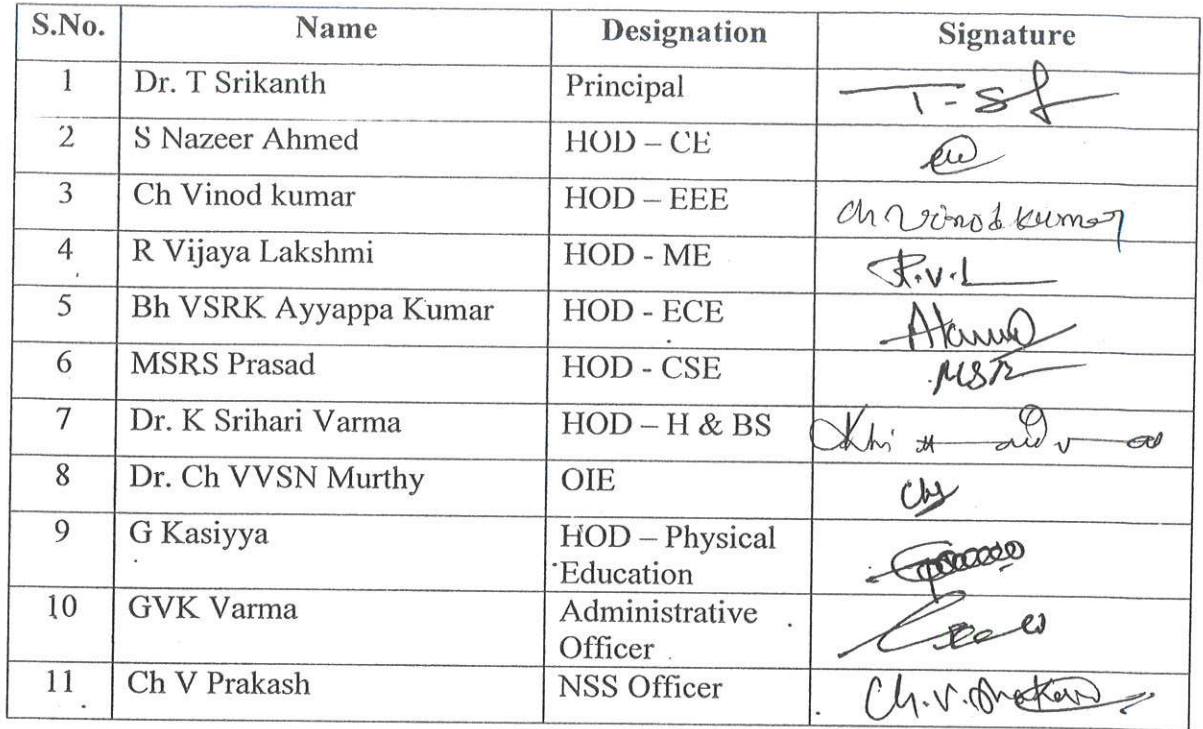 S.No. Name Designation Signature
1 Dr. T Srikanth Principal T-S
2 S Nazeer Ahmed HOD – CE
3 Ch Vinod kumar HOD – EEE Ch Vinod kumar
4 R Vijaya Lakshmi HOD - ME R.V.L
5 Bh VSRK Ayyappa Kumar HOD - ECE
6 MSRS Prasad HOD - CSE
7 Dr. K Srihari Varma HOD – H & BS
8 Dr. Ch VVSN Murthy OIE
9 G Kasiyya HOD – Physical
Education
10 GVK Varma Administrative
Officer
11 Ch V Prakash NSS Officer Ch.V.